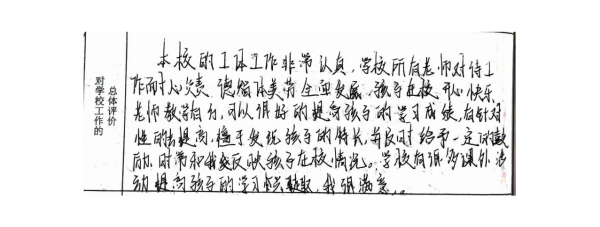 对学校工作的
总体评价
本校的工体工作非常认真，学校所有老师对待工
作耐心负责，德智体美劳全面发展，孩子在校开心快乐
老师教学有方，可以很好的提高孩子的学习成绩，有针对
性的提高，擅于发现孩子的特长，并及时给予一定的鼓
励，时常和我反映孩子在校情况。学校有很多课外活
动提高孩子的学习兴趣，我很满意